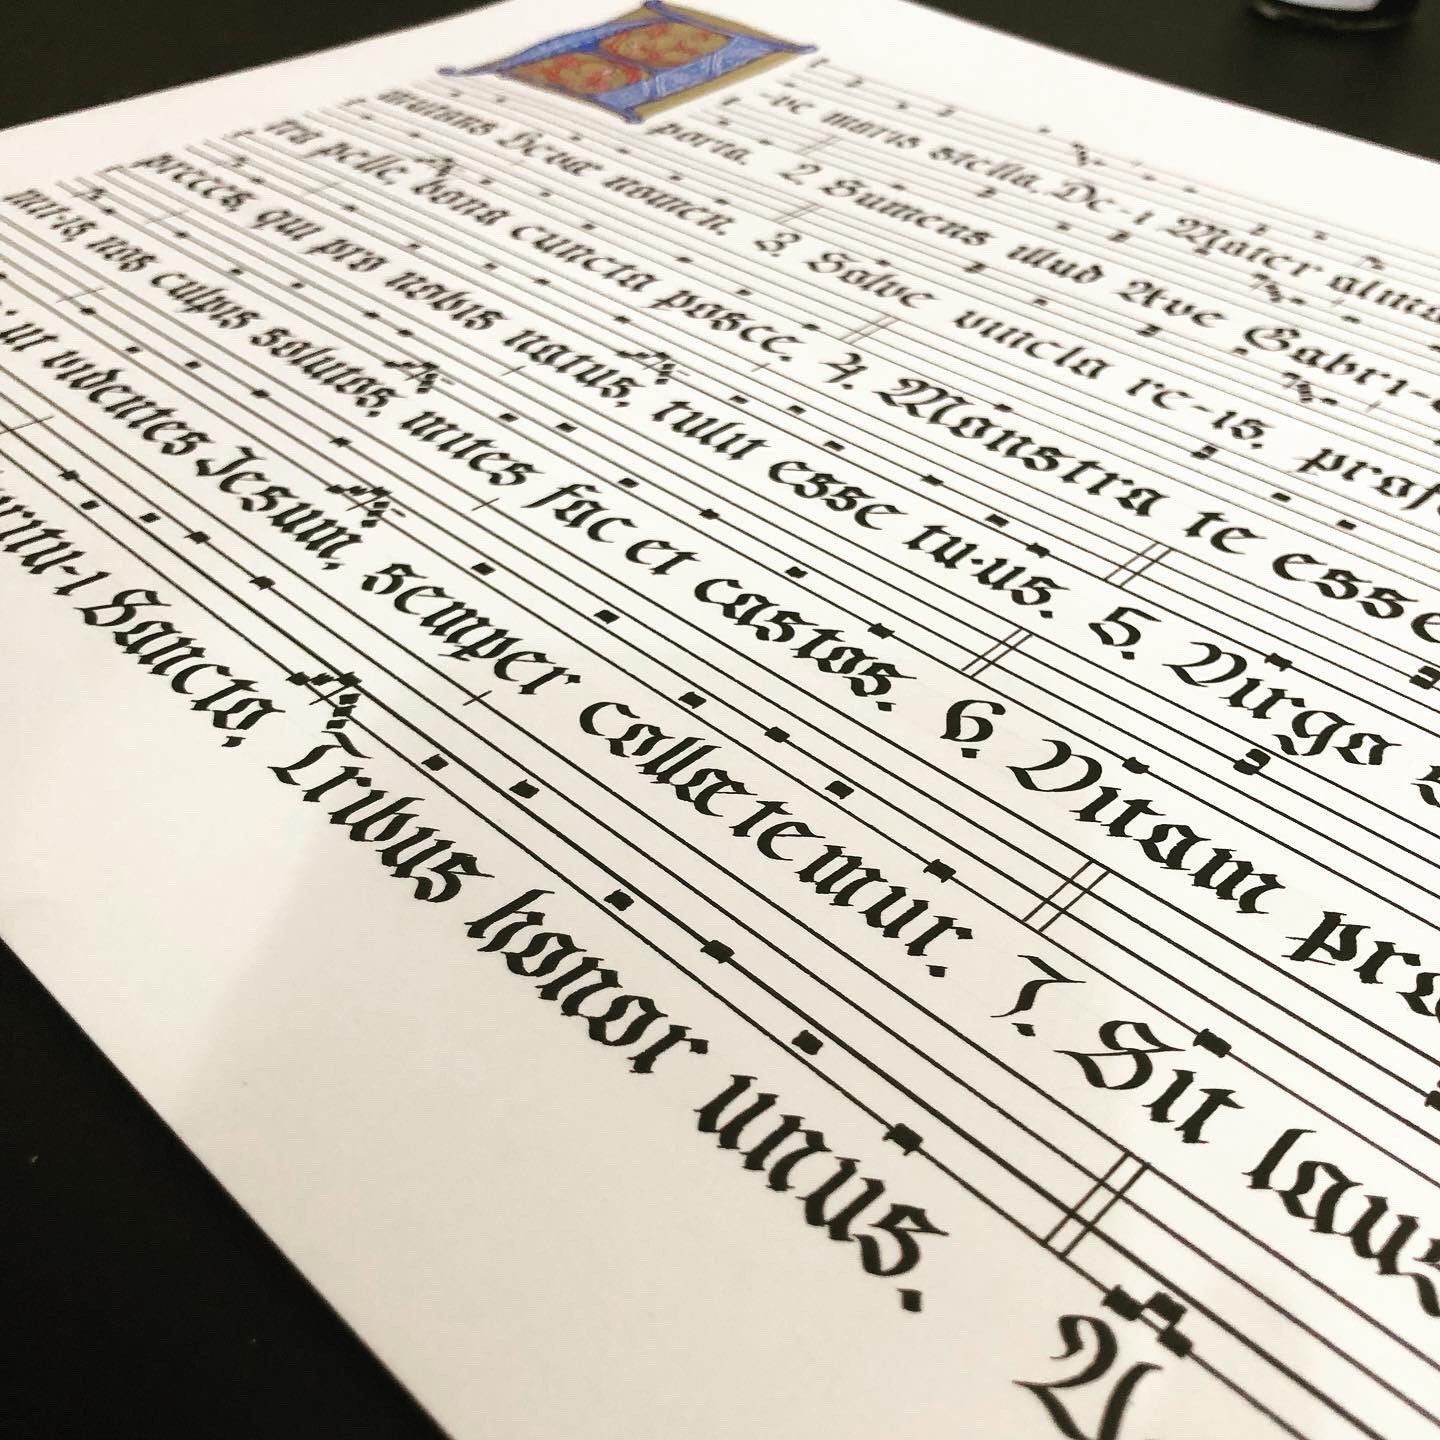 -ve maris stella, De-i Mater alma
porta. 2 Sumens illud Ave Gabri-
mutans Hevæ nomen. 3. Salve vincla re-is, prof
tra pelle, bona cuncta posce. 4. Monstra te esse
preces, qui pro nobis natus, tulit esse tu-us. 5. Virgo s
mit-is, nos culpis solutos, mites fac et castos. 6. Vitam pra
ut videntes Jesum, semper collætemur. 7. Sit laus
ritu-i Sancto, Tribus honor unus. A